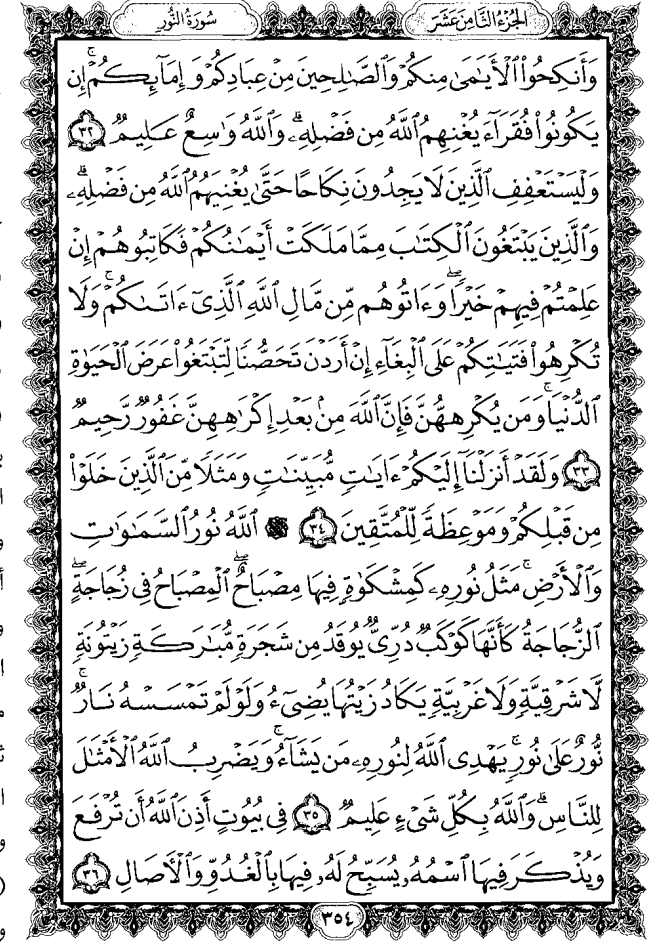 الجُزْءُ الثَّامِنَ عَشَرَ
سُورَةُ النُّور
وَأَنكِحُوا۟ ٱلْأَيَٰمَىٰ مِنكُمْ وَٱلصَّٰلِحِينَ مِنْ عِبَادِكُمْ وَإِمَآئِكُمْ ۚ إِن
يَكُونُوا۟ فُقَرَآءَ يُغْنِهِمُ ٱللَّهُ مِن فَضْلِهِۦ ۗ وَٱللَّهُ وَٰسِعٌ عَلِيمٌ ٣٢
وَلْيَسْتَعْفِفِ ٱلَّذِينَ لَا يَجِدُونَ نِكَاحًا حَتَّىٰ يُغْنِيَهُمُ ٱللَّهُ مِن فَضْلِهِۦ ۗ
وَٱلَّذِينَ يَبْتَغُونَ ٱلْكِتَٰبَ مِمَّا مَلَكَتْ أَيْمَٰنُكُمْ فَكَاتِبُوهُمْ إِنْ
عَلِمْتُمْ فِيهِمْ خَيْرًا ۖ وَءَاتُوهُم مِّن مَّالِ ٱللَّهِ ٱلَّذِىٓ ءَاتَىٰكُمْ ۚ وَلَا
تُكْرِهُوا۟ فَتَيَٰتِكُمْ عَلَى ٱلْبِغَآءِ إِنْ أَرَدْنَ تَحَصُّنًا لِّتَبْتَغُوا۟ عَرَضَ ٱلْحَيَوٰةِ
ٱلدُّنْيَا ۚ وَمَن يُكْرِههُّنَّ فَإِنَّ ٱللَّهَ مِنۢ بَعْدِ إِكْرَٰهِهِنَّ غَفُورٌ رَّحِيمٌ
٣٣ وَلَقَدْ أَنزَلْنَآ إِلَيْكُمْ ءَايَٰتٍ مُّبَيِّنَٰتٍ وَمَثَلًا مِّنَ ٱلَّذِينَ خَلَوْا۟
مِن قَبْلِكُمْ وَمَوْعِظَةً لِّلْمُتَّقِينَ ٣٤ ۞ ٱللَّهُ نُورُ ٱلسَّمَٰوَٰتِ
وَٱلْأَرْضِ ۚ مَثَلُ نُورِهِۦ كَمِشْكَوٰةٍ فِيهَا مِصْبَاحٌ ۖ ٱلْمِصْبَاحُ فِى زُجَاجَةٍ ۖ
ٱلزُّجَاجَةُ كَأَنَّهَا كَوْكَبٌ دُرِّىٌّ يُوقَدُ مِن شَجَرَةٍ مُّبَٰرَكَةٍ زَيْتُونَةٍ
لَّا شَرْقِيَّةٍ وَلَا غَرْبِيَّةٍ يَكَادُ زَيْتُهَا يُضِىٓءُ وَلَوْ لَمْ تَمْسَسْهُ نَارٌ ۚ
نُّورٌ عَلَىٰ نُورٍ ۗ يَهْدِى ٱللَّهُ لِنُورِهِۦ مَن يَشَآءُ ۚ وَيَضْرِبُ ٱللَّهُ ٱلْأَمْثَٰلَ
لِلنَّاسِ ۗ وَٱللَّهُ بِكُلِّ شَىْءٍ عَلِيمٌ ٣٥ فِى بُيُوتٍ أَذِنَ ٱللَّهُ أَن تُرْفَعَ
وَيُذْكَرَ فِيهَا ٱسْمُهُۥ يُسَبِّحُ لَهُۥ فِيهَا بِٱلْغُدُوِّ وَٱلْءَاصَالِ ٣٦
٣٥٤